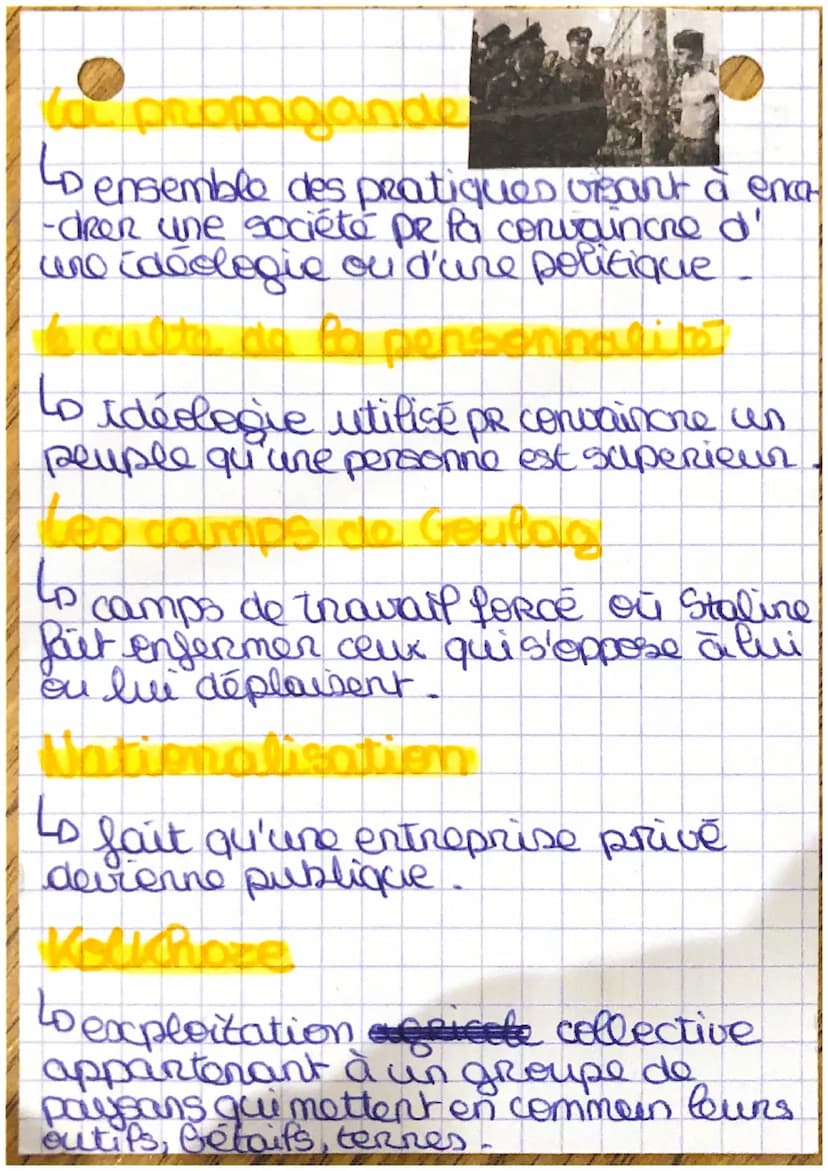 La propagande
↳ ensemble des pratiques visant à enca-
-drer une société pr la convaincre d'
une idéologie ou d'une politique.
le culte de la personnalité
↳ idéologie utilisé pr convaincre un
peuple qu'une personne est superieur.
Les camps de Goulag
↳ camps de travail forcé où Staline
fait enfermer ceux qui s'oppose à lui
ou lui déplaisent.
Nationalisation
↳ fait qu'une entreprise privé
devienne publique.
Kolkhoze
↳ exploitation agricole collective
appartenant à un groupe de
paysans qui mettent en commun leurs
outils, bétails, terres.